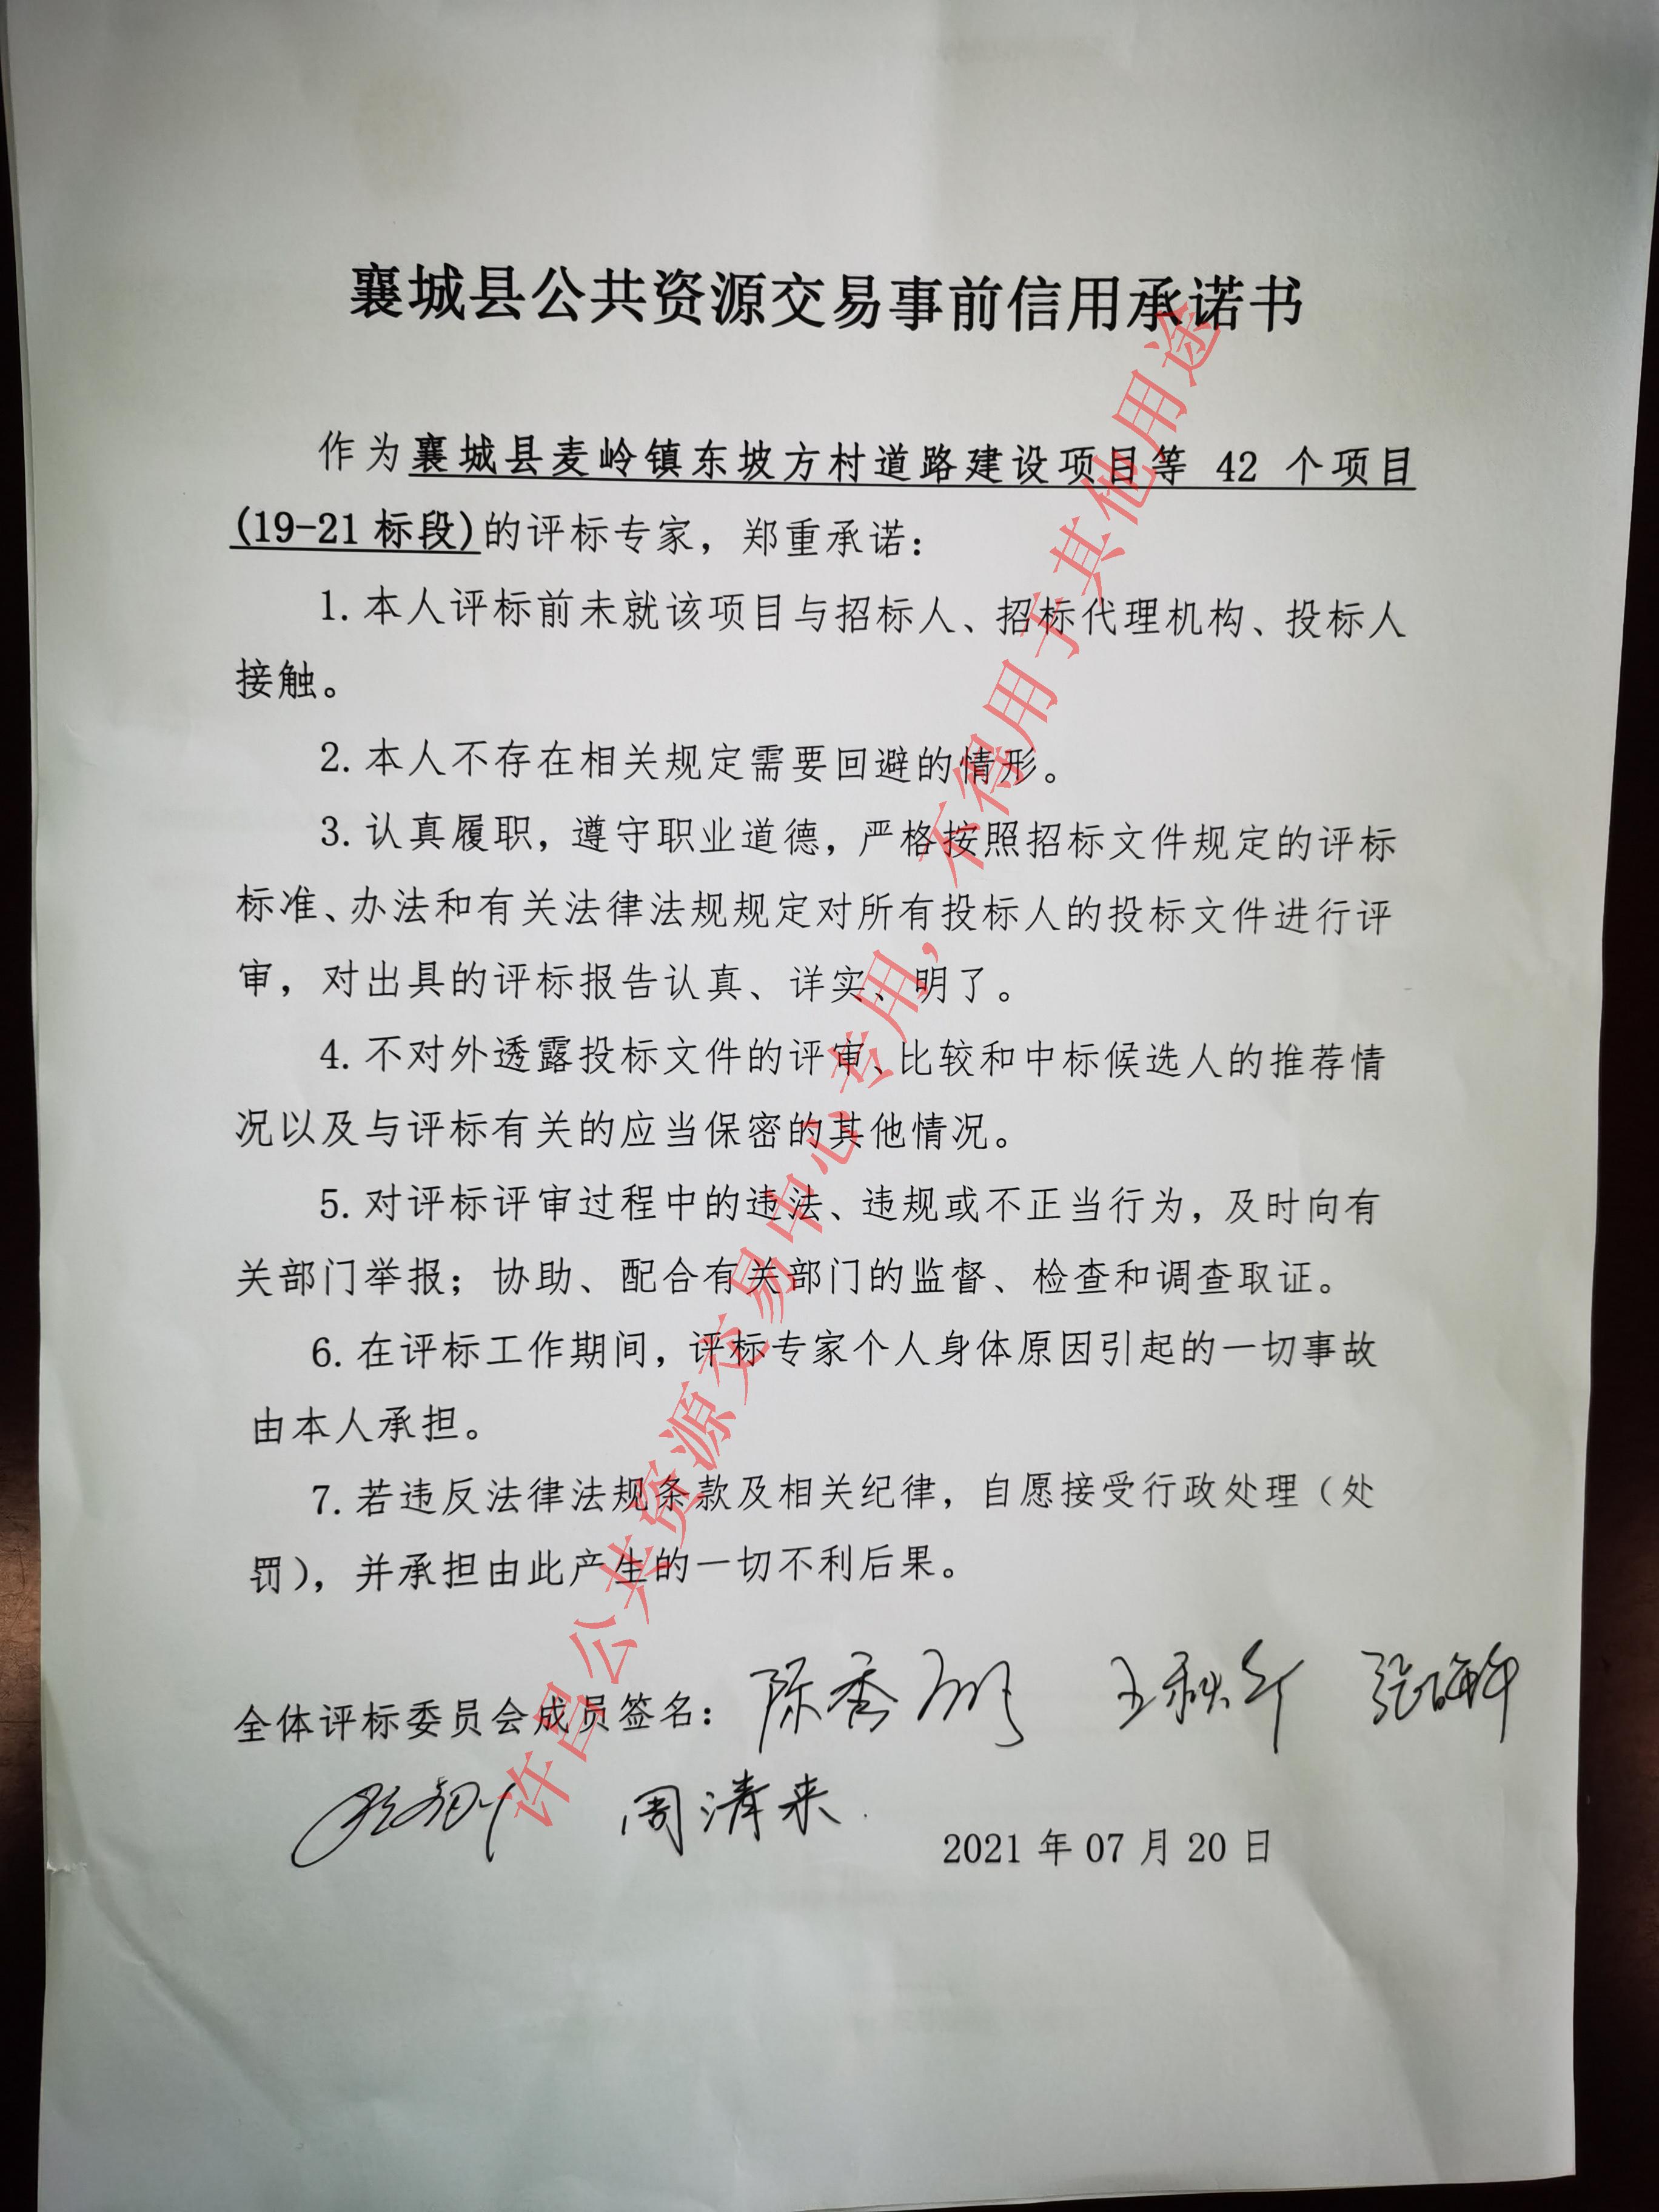 襄城县公共资源交易事前信用承诺书
作为襄城县麦岭镇东坡方村道路建设项目等 42 个项目
(19-21 标段)的评标专家，郑重承诺：
1.本人评标前未就该项目与招标人、招标代理机构、投标人
接触。
2.本人不存在相关规定需要回避的情形。
3.认真履职，遵守职业道德，严格按照招标文件规定的评标
标准、办法和有关法律法规规定对所有投标人的投标文件进行评
审，对出具的评标报告认真、详实、明了。
4.不对外透露投标文件的评审、比较和中标候选人的推荐情
况以及与评标有关的应当保密的其他情况。
5.对评标评审过程中的违法、违规或不正当行为，及时向有
关部门举报；协助、配合有关部门的监督、检查和调查取证。
6.在评标工作期间，评标专家个人身体原因引起的一切事故
由本人承担。
7.若违反法律法规条款及相关纪律，自愿接受行政处理（处
罚），并承担由此产生的一切不利后果。
全体评标委员会成员签名：陈秀 王秋
周清来
2021 年 07 月 20 日
许昌公共资源交易中心专用，不得用于其他用途